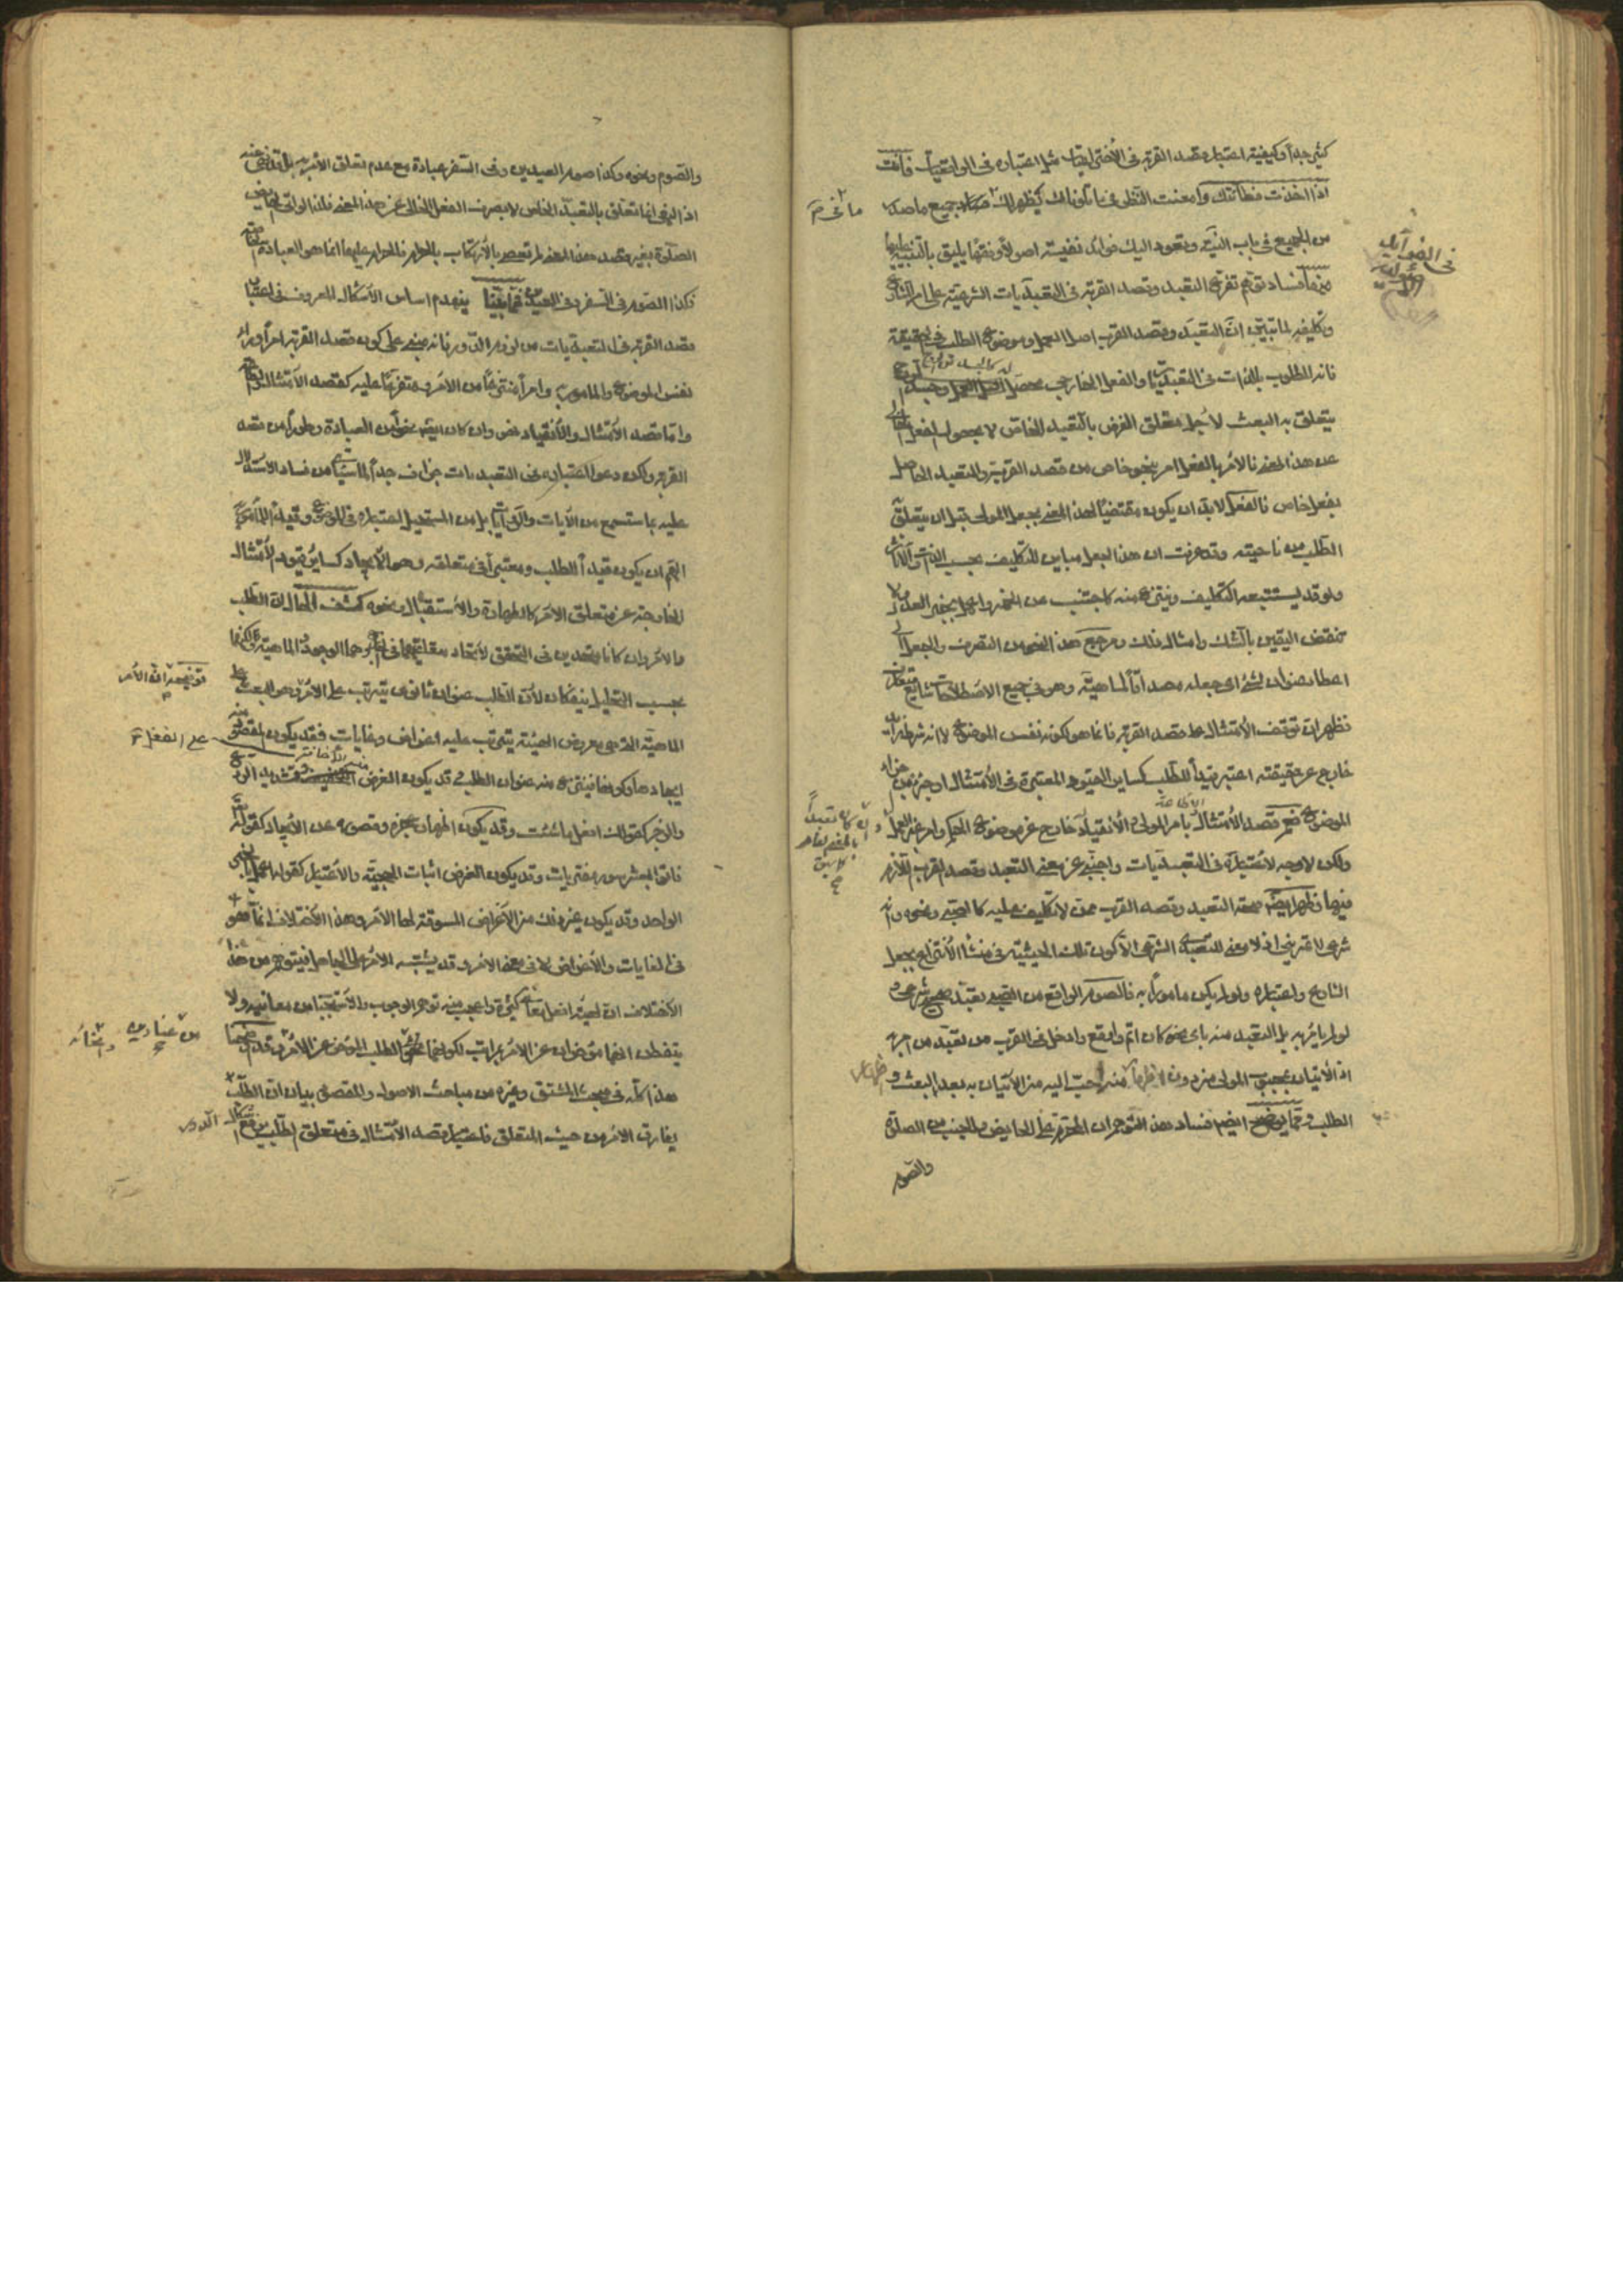 كثير جداً وكيفية اعتبار قصد القربة في الاختراعيات مثل اعتباره في الواقعيات فانت
اذا اخذت فطانتك وامعنت النظر في ما تلونا لك يظهر لك فساد جميع ما صدر
من الجميع في باب النية وتعود اليك فوائد نفيسة اصولاً وفقهاً يليق بالتنبيه عليها
منها فساد توهم تفرع التعبد وقصد القربة في التعبديات الشرعية على امر الشارع
وتكليفه لما تبين ان التعبد وقصد القرب اصل العمل وموضوع الطلب في الحقيقة
فانه المطلوب بالذات في التعبديات والفعل الخارجي محصل
يتعلق به البعث لاجل تعلق الغرض بالتعبد الخاص لا بحصول الفعل
عن هذا المعنى فالامر بالفعل امر بنحو خاص من قصد القربة والتعبد الحاصل
بفعل خاص فالفعل لابد ان يكون مقتضياً لهذا المعنى بجعل المولى قبل ان يتعلق
الطلب من ناحيته وقد عرفت ان هذا الجعل مباين للتكليف بحسب الذات والآثار
ولو قد يستتبعه التكليف وينتزع منه كاجتنب عن الخمر واعمل بخبر العدل ولا
تنقض اليقين بالشك وامثال ذلك ومرجع هذا النحو من التصرف والجعل الى
اعطاء عنوان لشيء اي جعله مصداقاً لماهية وهو في جميع الاصطلاحات شايع متعارف
فظهر ان توقف الامتثال على قصد القربة فانما هو لكونه نفس الموضوع لا انه شرط
خارج عن حقيقته اعتبر قيداً للطلب كساير القيود المعتبرة في الامتثال او جزء من
الموضوع نعم قصد الامتثال بامر المولى والانقياد خارج عن موضوع الحكم وامر غير العمل
ولكن لا وجه لاعتباره في التعبديات واجنبي عن معنى التعبد وقصد القرب اللازم
فيها وظهر ايضاً صحة التعبد وقصد القرب ممن لا تكليف عليه كالصبي ونحوه وانه
شرعي لا تمريني اذ لا معنى للتعبد الشرعي الا كون تلك الحيثية في منشأ الانتزاع بجعل
الشارع واعتباره ولو لم يكن ماموراً به فالصوم الواقع من الصبي تعبد صحيح شرعي و
لو لم يامر به بل التعبد منه باي نحو كان اتم واوقع وادخل في القرب من تعبد من امر به
اذ الاتيان بمحبوب المولى من دون الزام منه احب اليه من الاتيان به بعد البعث و
الطلب ومما يوضح ايضاً فساد هذا التوهم ان المحرم على الحايض والجنب من الصلوة
والصوم
ما خرم
في الفوائد
الاصولية
وان كان تعبداً
بالمعنى
والصوم ونحوه وكذا صوم العيدين وفي السفر عبادة مع عدم تعلق الامر به بل قد نهي عنه
اذ النهي انما تعلق بالتعبد الخاص لا بصرف الفعل الخالي عن هذا المعنى فلذا لو اتى الحايض
الصلوة بغير قصد هذا المعنى لم تعص بالارتكاب بالحرام فالحرام عليها انما هو العبادة
فكذا الصوم في السفر وفي العيد فمما بينا ينهدم اساس الاشكال المعروف في اعتبار
قصد القربة في التعبديات من لزوم الدور فانه مبني على كون قصد القربة امراً وراء
نفس الموضوع والمامور به وامراً منتزعاً من الامر متفرعاً عليه كقصد الامتثال
واما قصد الامتثال والانقياد نفس وان كان ايضاً نحواً من العبادة وطوراً من قصد
القربة ولكن دعوى اعتباره في التعبديات جزاف جداً لما سياتي من فساد الاستدلال
عليه بما ستسمع من الآيات والروايات بل من المستحيل اعتباره في الموضوع وقيداً للمامور به
اللهم ان يكون قيداً للطلب ومعتبراً في متعلقه وهو الايجاد كساير قيود الامتثال
الخارجة عن متعلق الامر كالطهارة والاستقبال ونحوه كشف الحال ان الطلب
والامر وان كانا متحدين في التحقق لاتحاد متعلقيهما في الخارج وهما الوجود والماهية ولكنهما
بحسب التحليل ينفكان لان الطلب عنوان ثانوي يترتب على الامر وهو البعث على
الماهية التي هي معروض الهيئة يترتب عليه اغراض وغايات فقد يكون المقصود منه
ايجادها وكونها فينتزع منه عنوان الطلب وقد يكون الغرض التهديد
والزجر كقولك افعل ما شئت وقد يكون اظهار عجزه وقصوره عن الايجاد كقوله تعالى
فاتوا بعشر سور مفتريات وقد يكون الغرض اثبات الحجية والاعتبار كقوله اعمل بالخبر
الواحد وقد يكون غير ذلك من الاغراض المسوقة لها الامر وهذا الاختلاف انما هو
في الغايات والاغراض لا في معنى الامر وقد يشتبه الامر على الجاهل فيتوهم من هذا
الاختلاف ان لهيئة افعل معاني كثيرة واعجب منه توهم الوجوب والاستحباب من معانيه ولا
يتفطن انهما متاخران عن الامر بمراتب لكونهما نحوي الطلب المتاخر عن الامر وقد اوضحنا
هذا كله في مبحث المشتق وغيره من مباحث الاصول والمقصود بيان ان الطلب
يفارق الامر من حيث المتعلق فاعتبار قصد الامتثال في متعلق الطلب يرفع اشكال الدور
توضيحه ان الامر
على الفعل
من عناوين